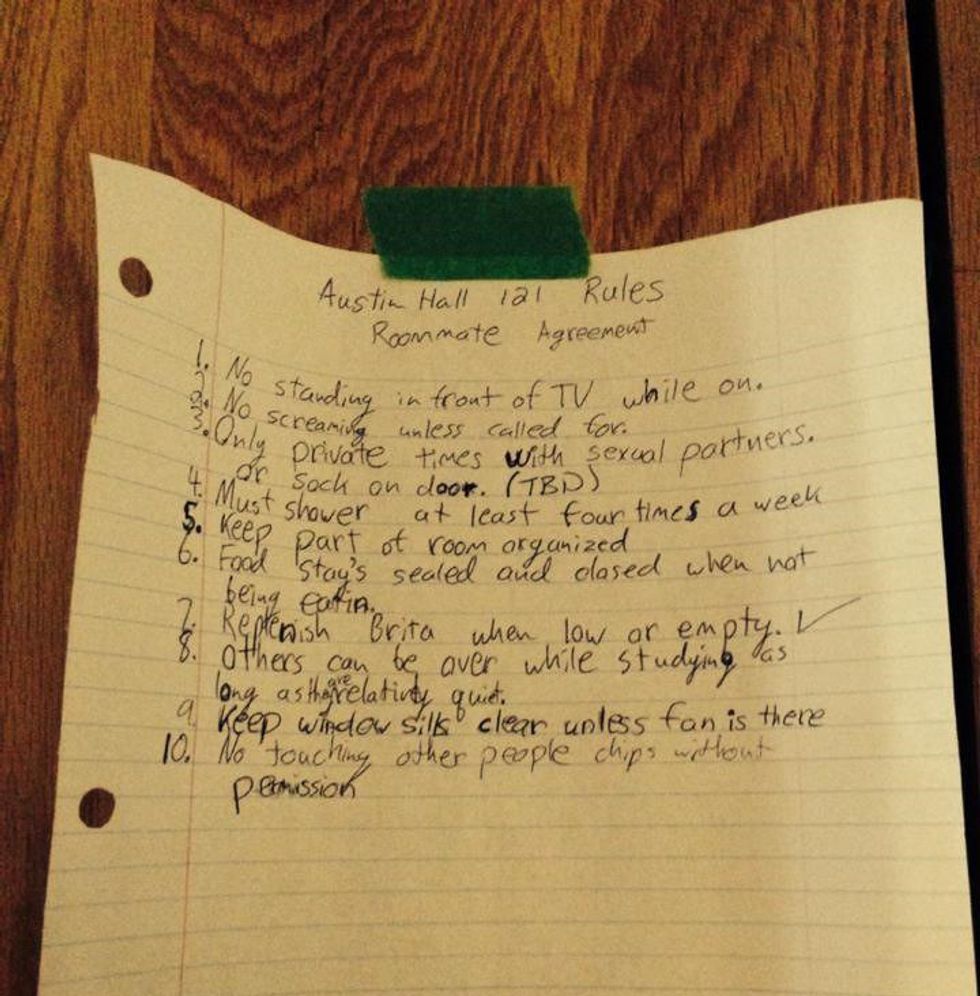 Austin Hall 121 Rules
Roommate Agreement
1. No standing in front of TV while on.
2. No screaming unless called for.
3. Only private times with sexual partners.
or sock on door. (TBD)
4. Must shower at least four times a week
5. Keep part of room organized
6. Food stay's sealed and closed when not
being eatin.
7. Replenish Brita when low or empty. ✓
8. Others can be over while studying as
long as they are relativly quiet.
9. Keep window sills clear unless fan is there
10. No touching other people chips without
permission